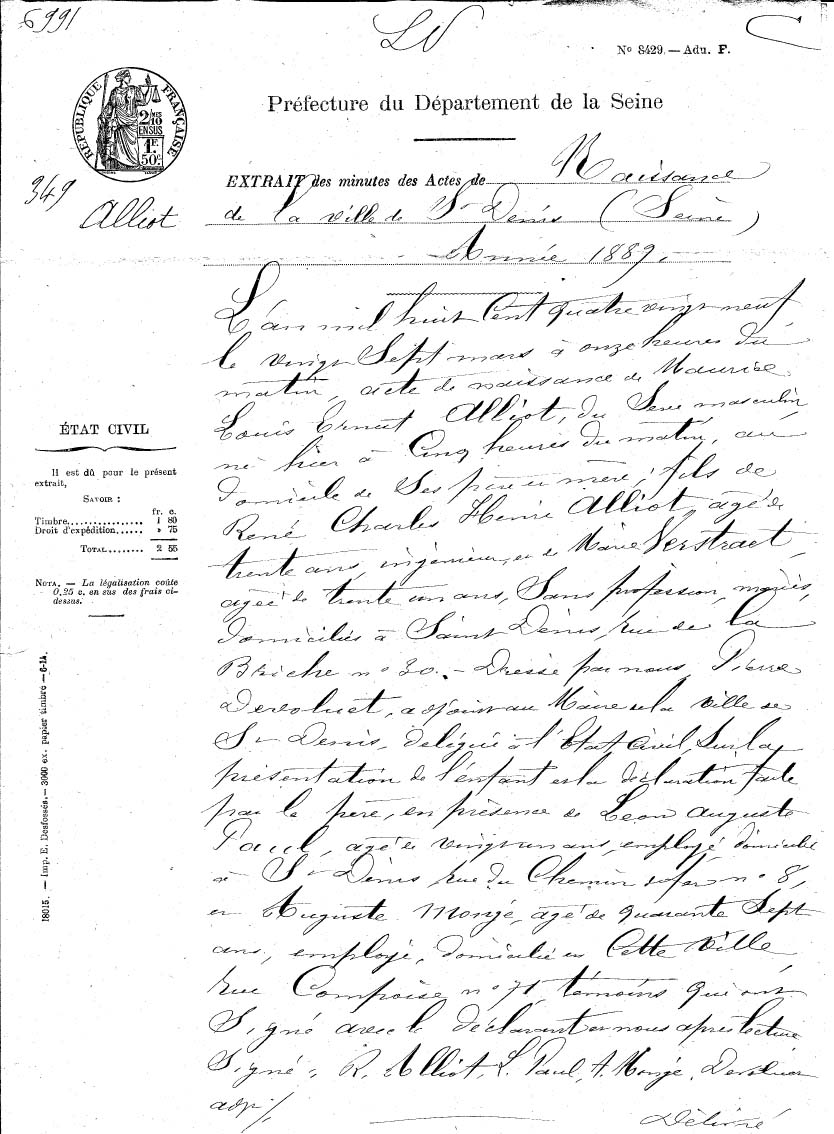 6991
LV
Nº 8429. — Adm. F.
RÉPUBLIQUE FRANÇAISE
2/10 MES
EN SUS
1F
50c
Préfecture du Département de la Seine
349
Alliot
EXTRAIT des minutes des Actes de Naissance
de la ville de St Denis (Seine)
Année 1889.
L'an mil huit Cent quatre vingt neuf
le vingt Sept mars à onze heures du
matin, acte de naissance de Maurice
Louis Ernest Alliot, du Sexe masculin
né hier à Cinq heures du matin, au
domicile de Ses père et mère; fils de
René Charles Henri Alliot, agé de
trente ans, ingénieur, et de Marie Verstraet,
agée de trente un ans, Sans profession, mariés,
domiciliés à Saint Denis, rue de la
Briche nº 30. — Dressé par nous, Pierre
Devoluet, adjoint au Maire de la Ville de
St Denis, délégué à l'Etat Civil, Sur la
présentation de l'enfant et la déclaration faite
par le père, en présence de Leon Auguste
Paul, agé de vingt un ans, employé, domicilié
à St Denis, rue du Chemin de fer nº 8,
et Auguste Mongé, agé de quarante Sept
ans, employé, domicilié en Cette Ville,
rue Compoise nº 71, témoins qui ont
Signé avec le déclarant et nous après lecture
Signé: R. Alliot, L. Paul, A. Mongé, Devoluet
adjt
Délivré
ÉTAT CIVIL
Il est dû pour le présent
extrait,
SAVOIR :
fr. c.
Timbre................ 1 80
Droit d'expédition...... » 75
TOTAL........ 2 55
NOTA. — La légalisation coûte
0,25 c. en sus des frais ci-
dessus.
18015. — Imp. E. Desfossés. — 3000 ex. papier timbré — 6-14.